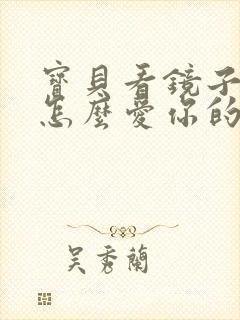 寶貝看鏡子
怎麼愛你的
吳秀蘭